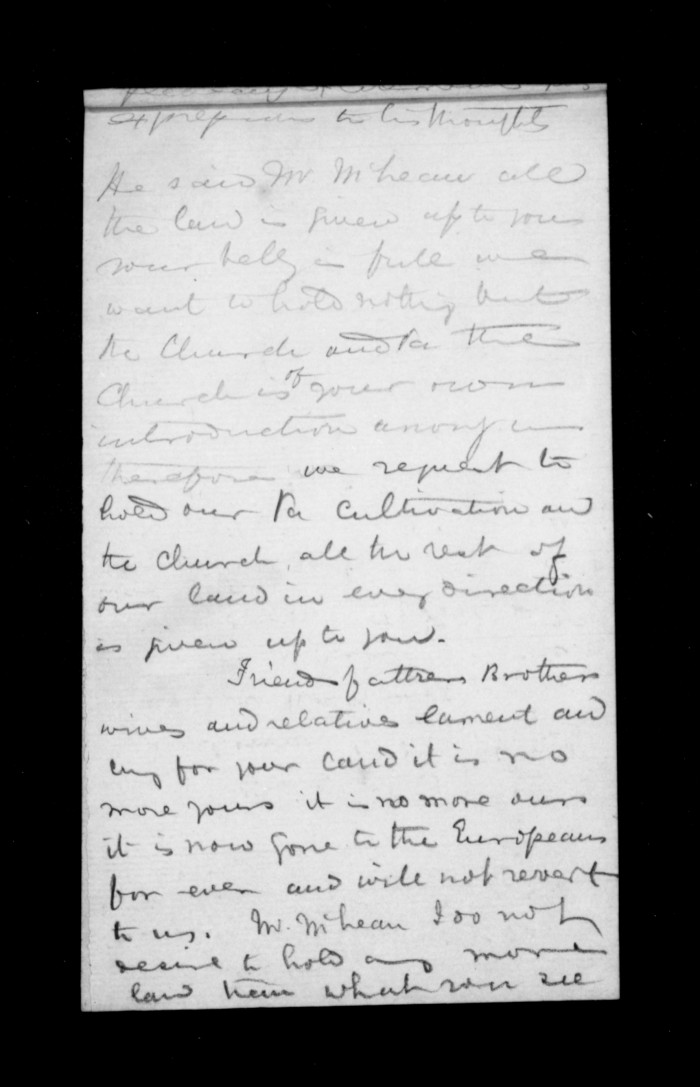 expressions to his thoughts
He said Mr McLean all
the land is given up to you
your belly is full we
want to hold nothing but
the Church and Pa the
Church is of your own
introduction among us
therefore we request to
hold our Pa cultivation and
the Church, all the rest of
our land in every direction
is given up to you.
Friends fathers Brothers
wives and relatives lament and
cry for your land it is no
more yours it is no more ours
it is now gone to the Europeans
for ever and will not revert
to us. Mr. McLean I do not
desire to hold any more
land than what you see